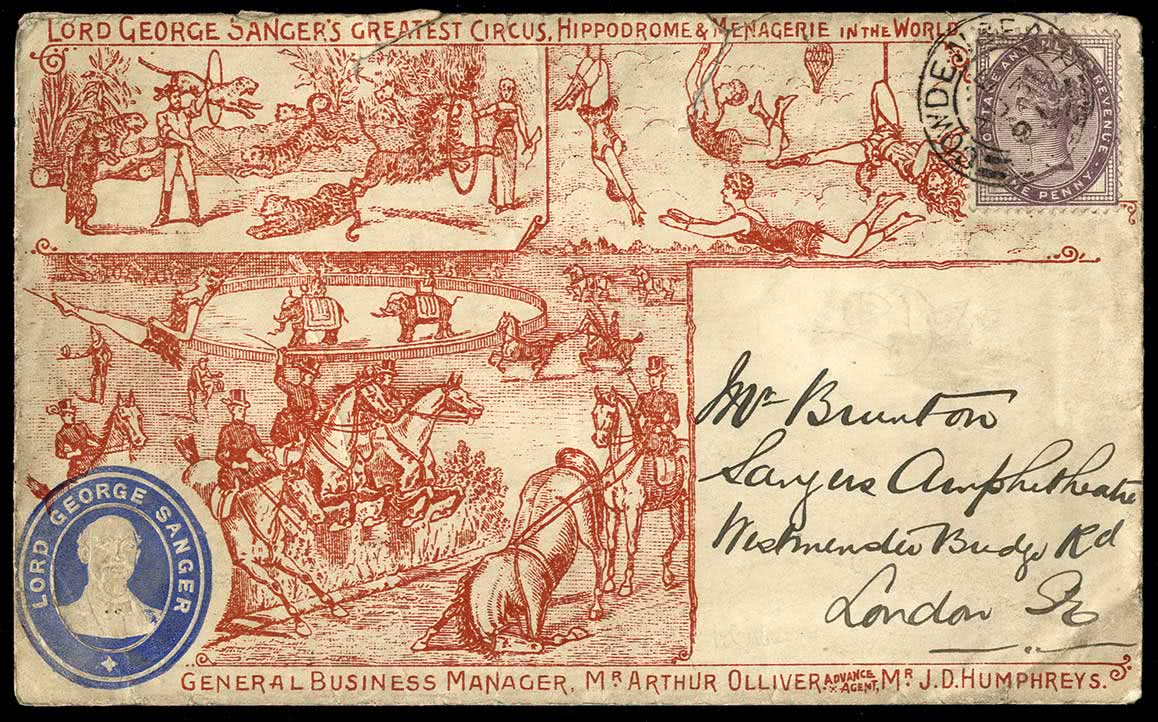 LORD GEORGE SANGER'S GREATEST CIRCUS, HIPPODROME & MENAGERIE IN THE WORLD
REVENUE
PENNY
Mr Brunton
Sangers Amphitheatre
Westminster Bridge Rd
London SE
LORD GEORGE SANGER
GENERAL BUSINESS MANAGER, MR ARTHUR OLLIVER ADVANCE AGENT, MR J.D. HUMPHREYS.